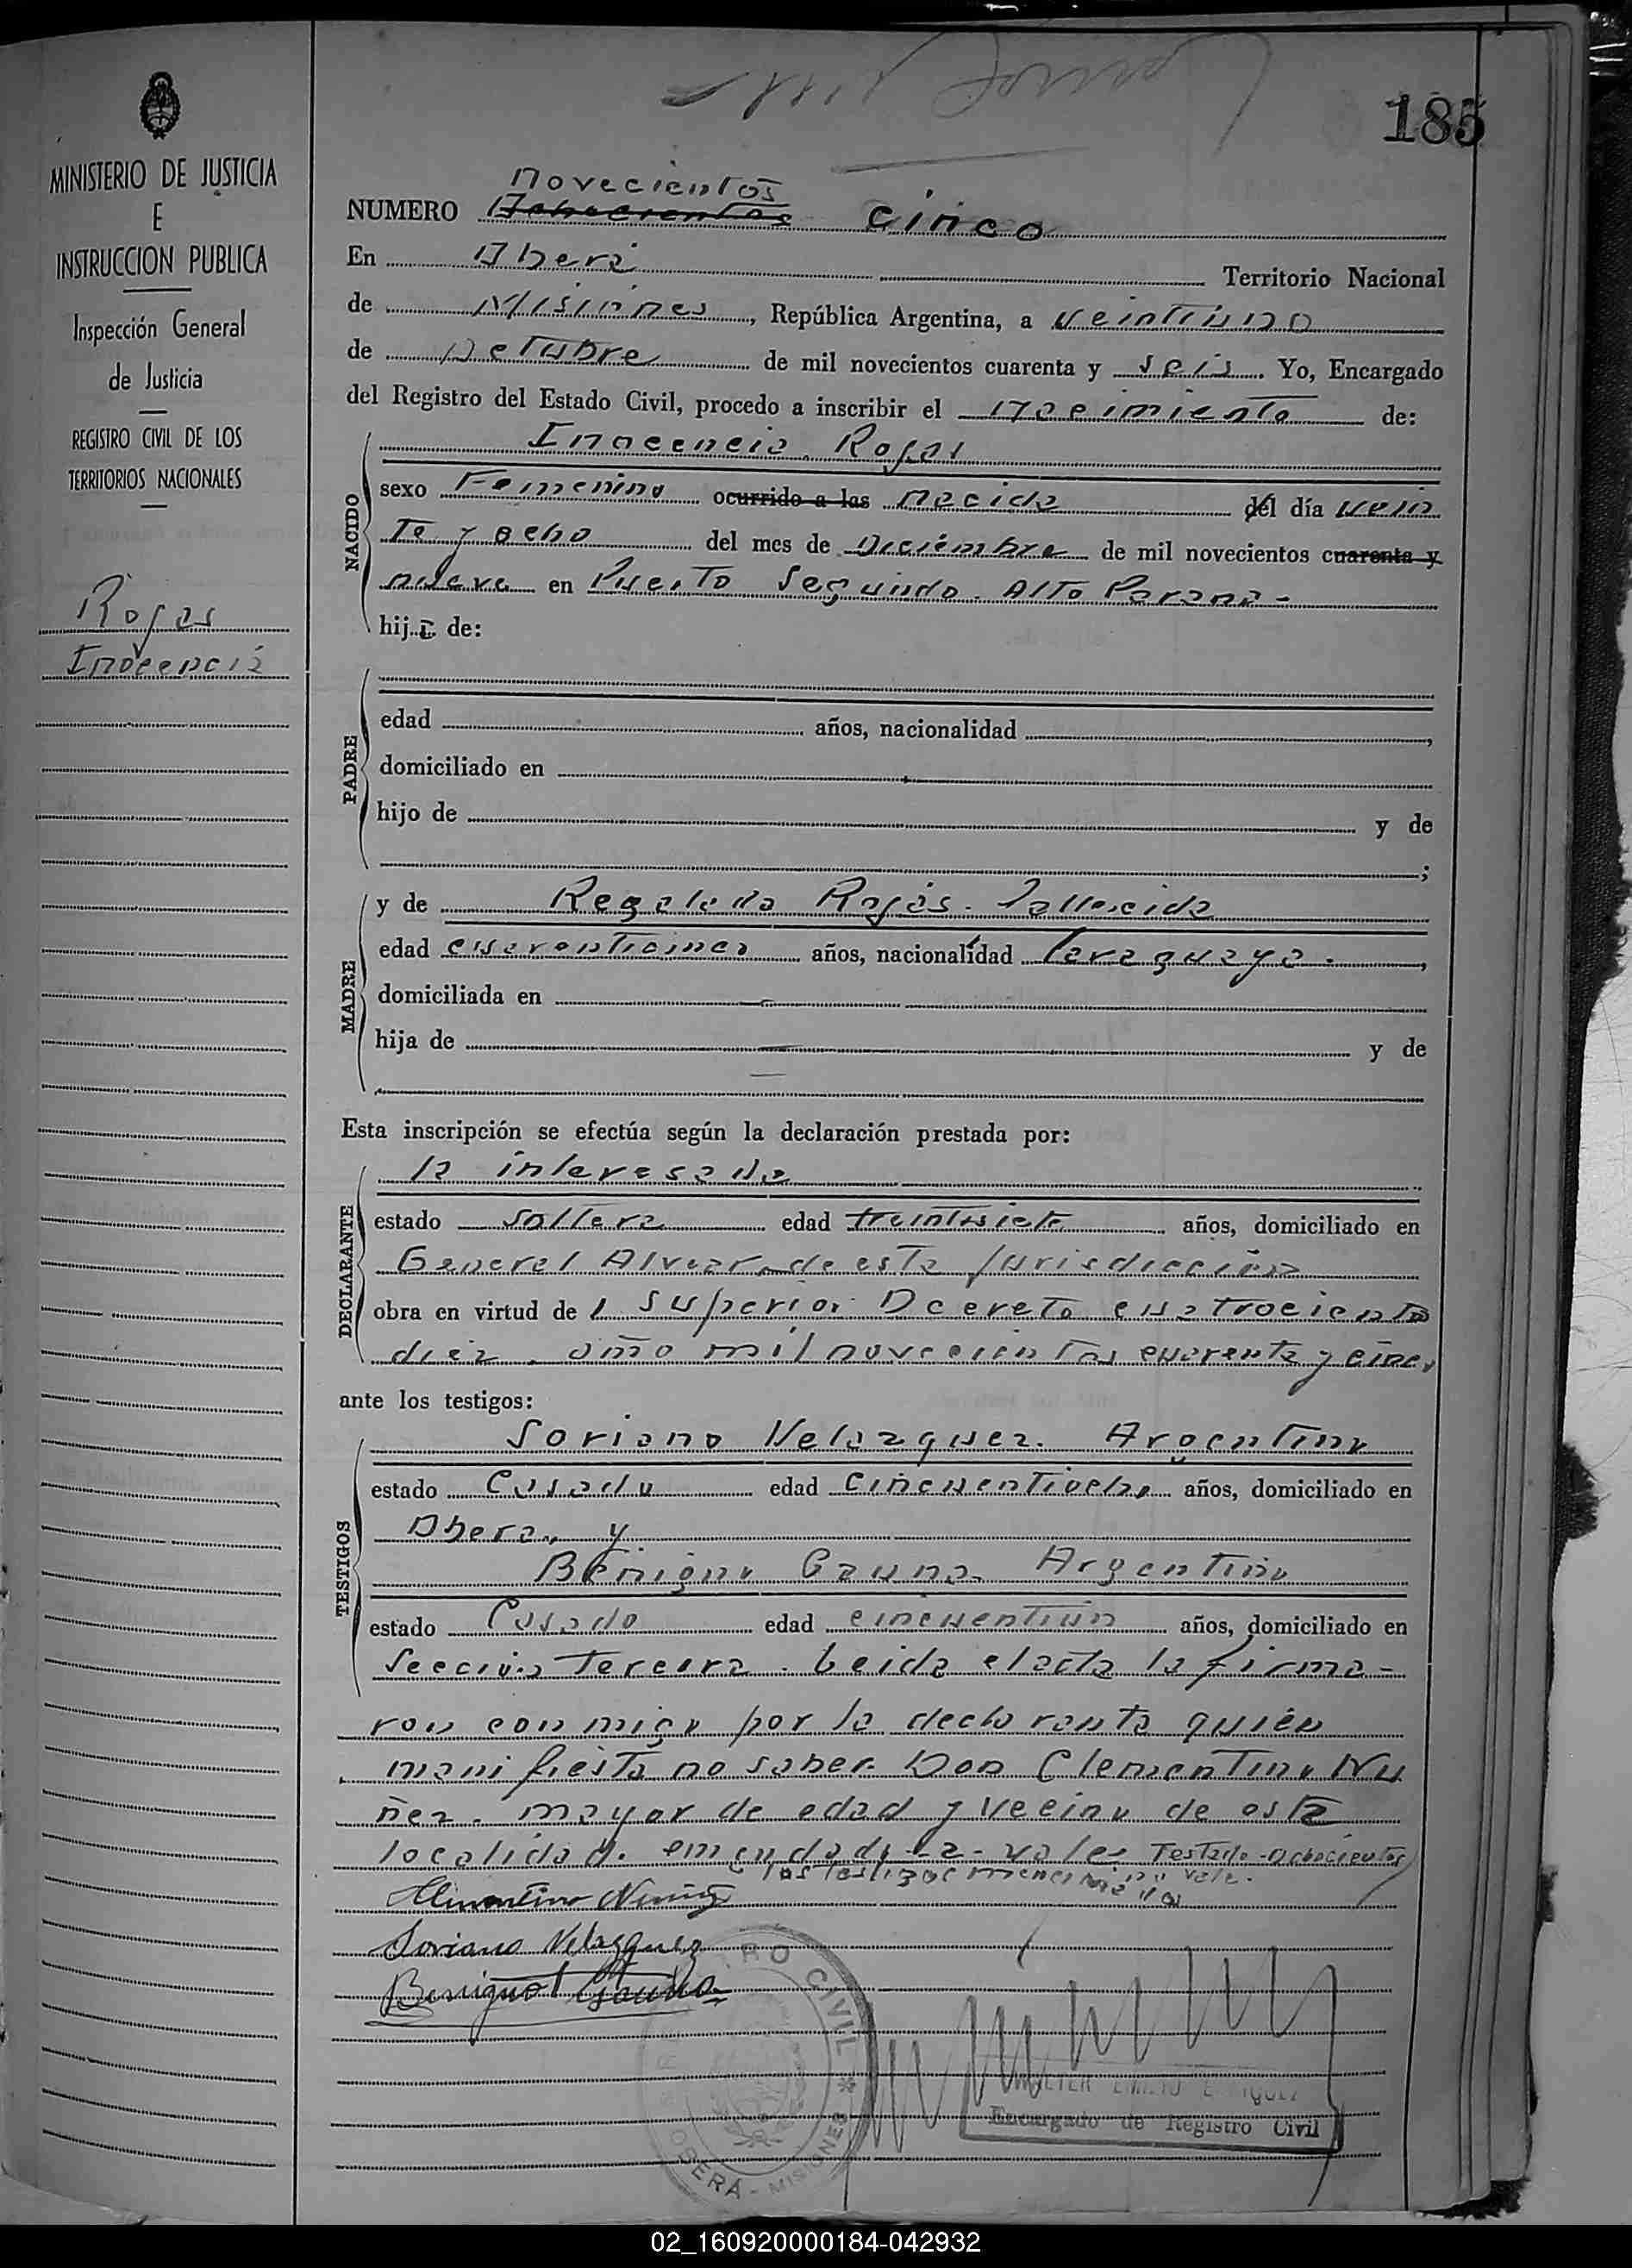 185
MINISTERIO DE JUSTICIA
E
INSTRUCCION PUBLICA
Inspección General
de Justicia
REGISTRO CIVIL DE LOS
TERRITORIOS NACIONALES
Rojas
Inocencia
novecientos
NUMERO Ochocientos cinco
En Oberá Territorio Nacional
de Misiones, República Argentina, a veintiuno
de Octubre de mil novecientos cuarenta y seis. Yo, Encargado
del Registro del Estado Civil, procedo a inscribir el nacimiento de:
NACIDO
Inocencia Rojas
sexo Femenino ocurrido a las nacida del día vein
te y ocho del mes de Diciembre de mil novecientos cuarenta y
nueve en Puerto Segundo. Alto Parana-
hija de:
PADRE
edad años, nacionalidad ,
domiciliado en
hijo de y de
;
MADRE
y de Regalada Rojas. fallecida
edad cuarenticinco años, nacionalidad Paraguaya.,
domiciliada en
hija de y de
Esta inscripción se efectúa según la declaración prestada por:
DECLARANTE
la interesada
estado soltera edad treintisiete años, domiciliado en
General Alvear, de esta jurisdicción
obra en virtud de l Superior Dcereto cuatrociento
diez. año mil novecientos cuarenta y cinco
ante los testigos:
TESTIGOS
Soriano Velazquez. Argentino
estado Casado edad cincuentiocho años, domiciliado en
Obera, y
Benigno Gauna. Argentino
estado Casado edad cincuentiun años, domiciliado en
Sección Tercera. Leida el acta la firma-
ron conmigo por la declarante quién
manifiesta no saber. Don Clementino Nu
ñez. mayor de edad y vecino de esta
localidad. emendado -a- vale- Testado-Ochocientos
los testigos vale.
Clementino Nuñez
Soriano Velazquez
Benigno Gauna
REGISTRO CIVIL
OBERA - MISIONES
Encargado de Registro Civil
02_160920000184-042932